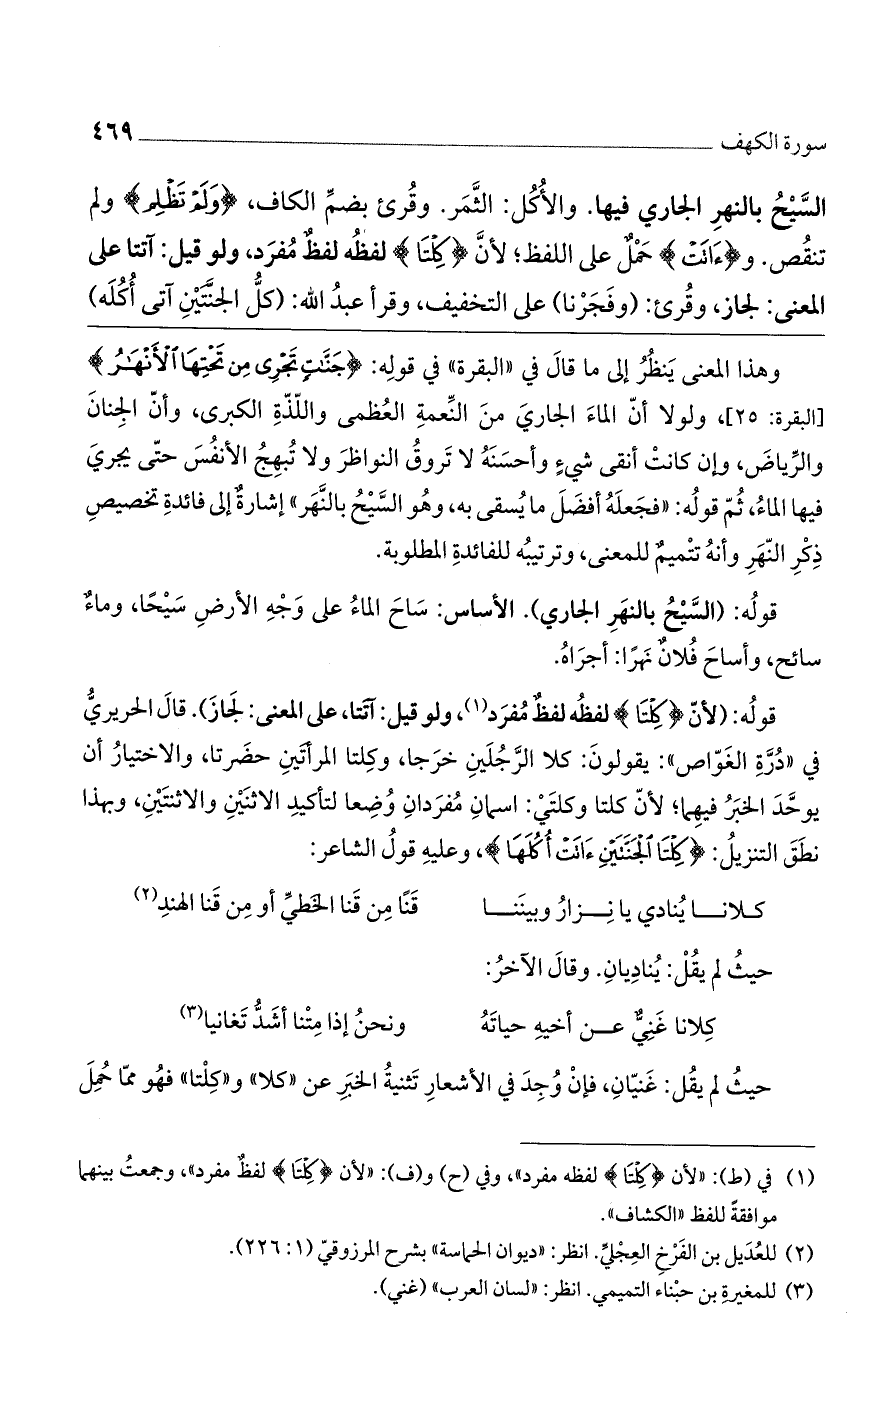 سورة الكهف ٤٦٩
السَّيْحُ بالنهرِ الجاري فيها. والأُكُل: الثَّمَر. وقُرئ بضمِّ الكاف، ﴿وَلَمْ تَظْلِم﴾ ولم
تنقُص. و﴿ءَانَتْ﴾ حَمْلٌ على اللفظ؛ لأنَّ ﴿كِلْتَا﴾ لفظُه لفظٌ مُفرَد، ولو قيل: آتتا على
المعنى: لجاز، وقُرئ: (وفَجَرْنا) على التخفيف، وقرأ عبدُ الله: (كلُّ الجنَّتَيْنِ آتى أُكُلَه)
وهذا المعنى يَنظُرُ إلى ما قالَ في «البقرة» في قولِه: ﴿جَنَّتٍ تَجْرِى مِن تَحْتِهَا ٱلْأَنْهَٰرُ﴾
[البقرة: ٢٥]، ولولا أنّ الماءَ الجاريَ منَ النِّعمةِ العُظمى واللّذّةِ الكبرى، وأنّ الجِنانَ
والرِّياضَ، وإن كانتْ أنقى شيءٍ وأحسَنَهُ لا تَروقُ النواظرَ ولا تُبهِجُ الأنفُسَ حتّى يجريَ
فيها الماءُ، ثُمّ قولُه: «فجَعلَهُ أفضَلَ ما يُسقى به، وهُو السَّيْحُ بالنَّهَر» إشارةٌ إلى فائدةِ تخصيصِ
ذِكْرِ النّهَرِ وأنهُ تتْميمٌ للمعنى، وترتيبُه للفائدةِ المطلوبة.
قولُه: (السَّيْحُ بالنهَرِ الجاري). الأساس: سَاحَ الماءُ على وَجْهِ الأرضِ سَيْحًا، وماءٌ
سائح، وأساحَ فُلانٌ نَهرًا: أجرَاهُ.
قولُه: (لأنّ ﴿كِلْتَا﴾ لفظُه لفظٌ مُفرَد(١)، ولو قيل: آتَتا، على المعنى: لَجاز). قالَ الحريريُّ
في «دُرَّةِ الغَوّاص»: يقولونَ: كلا الرَّجُلَينِ خرَجا، وكِلتا المرأتَينِ حضَرتا، والاختيارُ أن
يوحَّدَ الخبَرُ فيهِما؛ لأنّ كلتا وكلتَيْ: اسمانِ مُفرَدانِ وُضِعا لتأكيدِ الاثنَيْنِ والاثنتَيْنِ، وبهذا
نطَقَ التنزيلُ: ﴿كِلْتَا ٱلْجَنَّتَيْنِ ءَانَتْ أُكُلَهَا﴾، وعليهِ قولُ الشاعر:
كلانا يُنادي يا نِزارُ وبينَنا قَنًا مِن قَنا الخَطيِّ أو مِن قَنا الهندِ(٢)
حيثُ لم يقُلْ: يُنادِيانِ. وقالَ الآخرُ:
كِلانا غَنِيٌّ عن أخيهِ حياتَهُ ونحنُ إذا مِتْنا أشَدُّ تَغانيا(٣)
حيثُ لم يقُل: غَنيّانِ، فإنْ وُجِدَ في الأشعارِ تَثنيةُ الخبَرِ عن «كلا» و«كِلْتا» فهُو ممّا حُمِلَ
(١) في (ط): «لأن ﴿كِلْتَا﴾ لفظه مفرد»، وفي (ح) و(ف): «لأن ﴿كِلْتَا﴾ لفظٌ مفرد»، وجمعتُ بينهما
موافقةً للفظ «الكشاف».
(٢) للعُدَيل بن الفَرْخِ العِجْليِّ. انظر: «ديوان الحماسة» بشرح المرزوقيّ (١: ٢٢٦).
(٣) للمغيرةِ بن حبْناء التميمي. انظر: «لسان العرب» (غني).